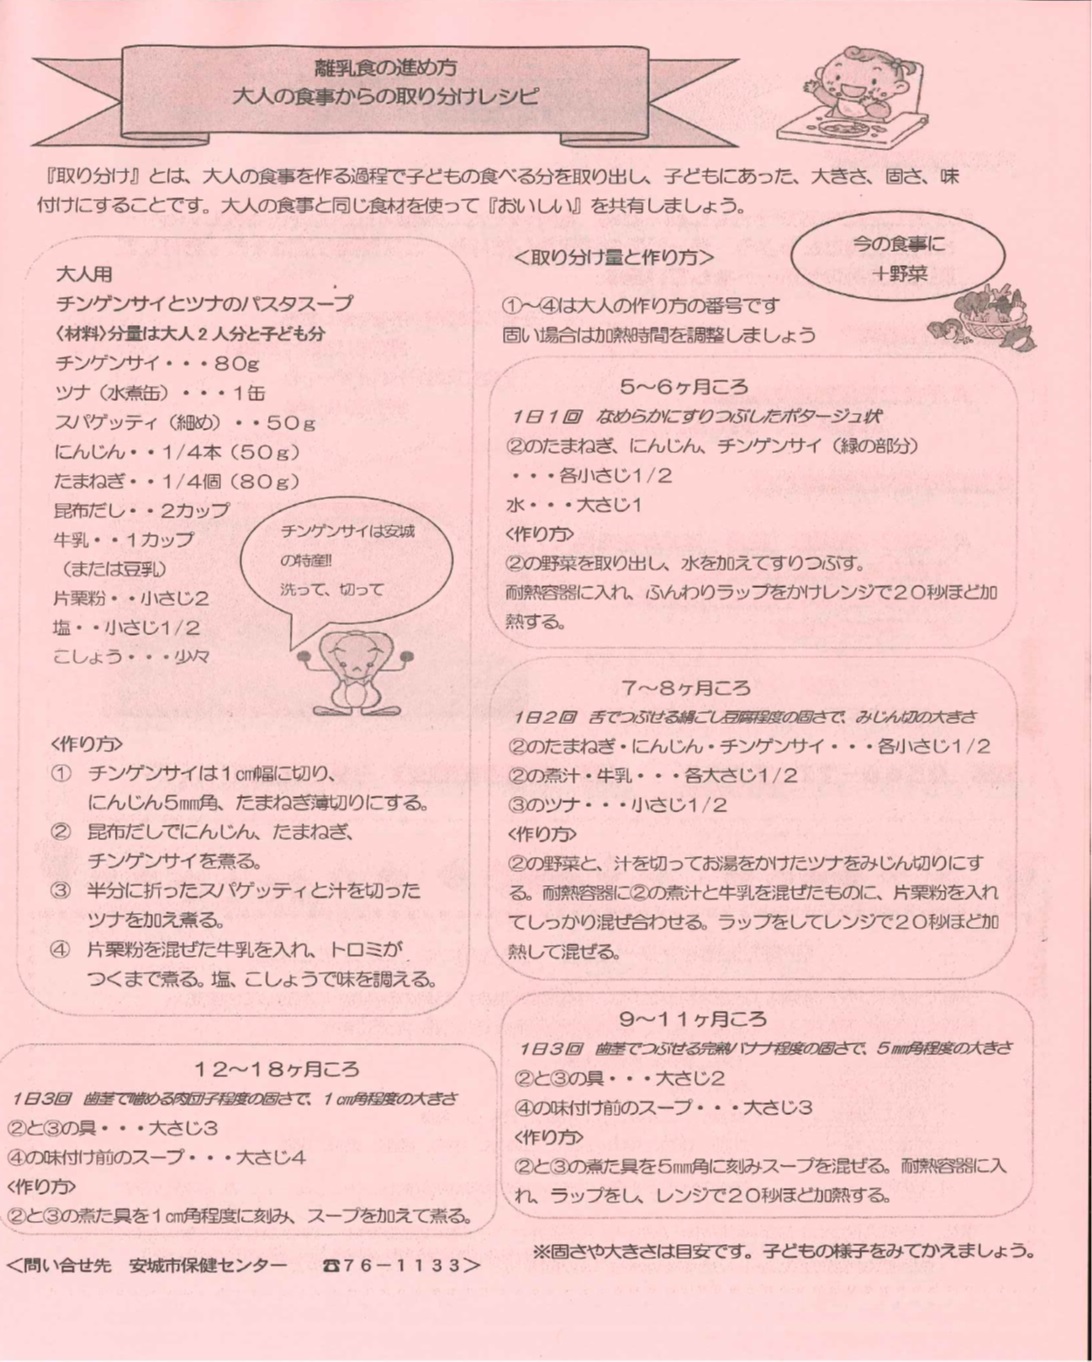 離乳食の進め方
大人の食事からの取り分けレシピ
『取り分け』とは、大人の食事を作る過程で子どもの食べる分を取り出し、子どもにあった、大きさ、固さ、味
付けにすることです。大人の食事と同じ食材を使って『おいしい』を共有しましょう。
今の食事に
＋野菜
大人用
チンゲンサイとツナのパスタスープ
〈材料〉分量は大人２人分と子ども分
チンゲンサイ・・・８０ｇ
ツナ（水煮缶）・・・１缶
スパゲッティ（細め）・・５０ｇ
にんじん・・１/４本（５０ｇ）
たまねぎ・・１/４個（８０ｇ）
昆布だし・・２カップ
牛乳・・１カップ
（または豆乳）
片栗粉・・小さじ２
塩・・小さじ１/２
こしょう・・・少々
チンゲンサイは安城
の特産!!
洗って、切って
〈作り方〉
① チンゲンサイは１㎝幅に切り、
にんじん５㎜角、たまねぎ薄切りにする。
② 昆布だしでにんじん、たまねぎ、
チンゲンサイを煮る。
③ 半分に折ったスパゲッティと汁を切った
ツナを加え煮る。
④ 片栗粉を混ぜた牛乳を入れ、トロミが
つくまで煮る。塩、こしょうで味を調える。
＜取り分け量と作り方＞
①～④は大人の作り方の番号です
固い場合は加熱時間を調整しましょう
５～６ヶ月ころ
１日１回 なめらかにすりつぶしたポタージュ状
②のたまねぎ、にんじん、チンゲンサイ（緑の部分）
・・・各小さじ１/２
水・・・大さじ１
〈作り方〉
②の野菜を取り出し、水を加えてすりつぶす。
耐熱容器に入れ、ふんわりラップをかけレンジで２０秒ほど加
熱する。
７～８ヶ月ころ
１日２回 舌でつぶせる絹ごし豆腐程度の固さで、みじん切の大きさ
②のたまねぎ・にんじん・チンゲンサイ・・・各小さじ１/２
②の煮汁・牛乳・・・各大さじ１/２
③のツナ・・・小さじ１/２
〈作り方〉
②の野菜と、汁を切ってお湯をかけたツナをみじん切りにす
る。耐熱容器に②の煮汁と牛乳を混ぜたものに、片栗粉を入れ
てしっかり混ぜ合わせる。ラップをしてレンジで２０秒ほど加
熱して混ぜる。
９～１１ヶ月ころ
１日３回 歯茎でつぶせる完熟バナナ程度の固さで、５㎜角程度の大きさ
②と③の具・・・大さじ２
④の味付け前のスープ・・・大さじ３
〈作り方〉
②と③の煮た具を５㎜角に刻みスープを混ぜる。耐熱容器に入
れ、ラップをし、レンジで２０秒ほど加熱する。
１２～１８ヶ月ころ
１日３回 歯茎で噛める肉団子程度の固さで、１㎝角程度の大きさ
②と③の具・・・大さじ３
④の味付け前のスープ・・・大さじ４
〈作り方〉
②と③の煮た具を１㎝角程度に刻み、スープを加えて煮る。
※固さや大きさは目安です。子どもの様子をみてかえましょう。
＜問い合せ先 安城市保健センター ☎７６－１１３３＞